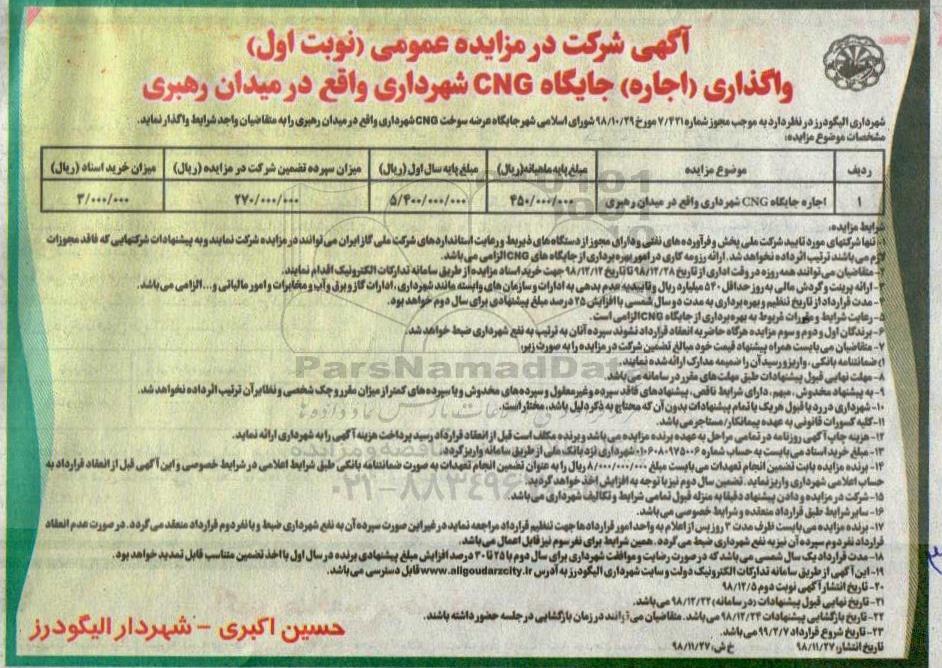 آگهی شرکت در مزایده عمومی (نوبت اول)
واگذاری (اجاره) جایگاه CNG شهرداری واقع در میدان رهبری
شهرداری الیگودرز در نظر دارد به موجب مجوز شماره ۷/۴۲۱ مورخ ۹۸/۱۰/۲۹ شورای اسلامی شهر جایگاه عرضه سوخت CNG شهرداری واقع در میدان رهبری را به متقاضیان واجد شرایط واگذار نماید.
مشخصات موضوع مزایده:
ردیف موضوع مزایده مبلغ پایه ماهیانه (ریال) مبلغ پایه سال اول (ریال) میزان سپرده تضمین شرکت در مزایده (ریال) میزان خرید اسناد (ریال)
۱ اجاره جایگاه CNG شهرداری واقع در میدان رهبری ۴۵۰/۰۰۰/۰۰۰ ۵/۴۰۰/۰۰۰/۰۰۰ ۲۷۰/۰۰۰/۰۰۰ ۳/۰۰۰/۰۰۰
شرایط مزایده:
۱- تنها شرکتهای مورد تایید شرکت ملی پخش و فرآورده های نفتی و دارای مجوز از دستگاه های ذیربط و رعایت استانداردهای شرکت ملی گاز ایران می توانند در مزایده شرکت نمایند و به پیشنهادات شرکتهایی که فاقد مجوزات
لازم می باشند ترتیب اثر داده نخواهد شد. ارائه رزومه کاری در امور بهره برداری از جایگاه های CNG الزامی می باشد.
۲- متقاضیان می توانند همه روزه در وقت اداری از تاریخ ۹۸/۱۲/۲۸ تا تاریخ ۹۸/۱۲/۱۲ جهت خرید اسناد مزایده از طریق سامانه تدارکات الکترونیک اقدام نمایند.
۳- ارائه پرینت و گردش مالی به روز حداقل ۵۴۰ میلیارد ریال و تاییدیه عدم بدهی به ادارات و سازمان های وابسته مانند شهرداری، ادارات گاز و برق و آب و مخابرات و امور مالیاتی و... الزامی می باشد.
۴- مدت قرارداد از تاریخ تنظیم و بهره برداری به مدت دو سال شمسی با افزایش ۲۵ درصد مبلغ پیشنهادی برای سال دوم خواهد بود.
۵- رعایت شرایط و مقررات مربوط به بهره برداری از جایگاه CNG الزامی است.
۶- برندگان اول و دوم و سوم مزایده هرگاه حاضر به انعقاد قرارداد نشوند سپرده آنان به ترتیب به نفع شهرداری ضبط خواهد شد.
۷- متقاضیان می بایست همراه پیشنهاد قیمت خود مبالغ تضمین شرکت در مزایده را به صورت زیر:
۱) ضمانتنامه بانکی، واریز و رسید آن را ضمیمه مدارک ارائه شده نمایند.
۸- مهلت نهایی قبول پیشنهادات طبق مهلت های مقرر در سامانه می باشد.
۹- به پیشنهاد مخدوش، مبهم، دارای شرایط ناقص، پیشنهادهای فاقد سپرده و غیر معلول و سپرده های مخدوش و یا سپرده های کمتر از میزان مقرر و چک شخصی و نظایر آن ترتیب اثر داده نخواهد شد.
۱۰- شهرداری در رد یا قبول هر یک یا تمام پیشنهادات بدون آن که محتاج به ذکر دلیل باشد، مختار است.
۱۱- کلیه کسورات قانونی به عهده پیمانکار/مستاجر می باشد.
۱۲- هزینه چاپ آگهی روزنامه در تمامی مراحل به عهده برنده مزایده می باشد و برنده مکلف است قبل از انعقاد قرارداد رسید پرداخت هزینه آگهی را به شهرداری ارائه نماید.
۱۳- مبلغ خرید اسناد می بایست به حساب شماره ۰۱۰۶۰۸۰۱۲۵۰۰۶ شهرداری نزد بانک ملی از طریق سامانه واریز گردد.
۱۴- برنده مزایده بابت تضمین انجام تعهدات می بایست مبلغ ۸/۰۰۰/۰۰۰/۰۰۰ ریال را به عنوان تضمین انجام تعهدات به صورت ضمانتنامه بانکی طبق شرایط اعلامی در شرایط خصوصی و این آگهی قبل از انعقاد قرارداد به
حساب اعلامی شهرداری واریز نماید. تضمین سال دوم نیز با توجه به افزایش اخذ خواهد گردید.
۱۵- شرکت در مزایده و دادن پیشنهاد دقیقا به منزله قبول تمامی شرایط و تکالیف شهرداری می باشد.
۱۶- سایر شرایط طبق قرارداد منعقده و شرایط خصوصی می باشد.
۱۷- برنده مزایده می بایست ظرف مدت ۳ روز پس از اعلام به واحد امور قراردادها جهت تنظیم قرارداد مراجعه نماید در غیر این صورت سپرده آن به نفع شهرداری ضبط و با نفر دوم قرارداد منعقد می گردد. در صورت عدم انعقاد
قرارداد نفر دوم سپرده آن نیز به نفع شهرداری ضبط می گردد. همین شرایط برای نفر سوم نیز قابل اعمال می باشد.
۱۸- مدت قرارداد یک سال شمسی می باشد که در صورت رضایت و موافقت شهرداری برای سال دوم با ۲۵ تا ۳۰ درصد افزایش مبلغ پیشنهادی برنده در سال اول با اخذ تضمین متناسب قابل تمدید خواهد بود.
۱۹- این آگهی از طریق سامانه تدارکات الکترونیک دولت و سایت شهرداری الیگودرز به آدرس www.aligoudarzcity.ir قابل دسترسی می باشد.
۲۰- تاریخ انتشار آگهی نوبت دوم ۹۸/۱۲/۵
۲۱- تاریخ نهایی قبول پیشنهادات (در سامانه) ۹۸/۱۲/۲۲ می باشد.
۲۲- تاریخ بازگشایی پیشنهادات ۹۸/۱۲/۲۴ می باشد. متقاضیان می توانند در زمان بازگشایی در جلسه حضور داشته باشند.
۲۳- تاریخ شروع قرارداد ۹۹/۲/۷ می باشد.
تاریخ انتشار: ۹۸/۱۱/۲۷ خ ش: ۹۸/۱۱/۲۷
حسین اکبری - شهردار الیگودرز
ParsNamadData
۰۲۱-۸۸۳۴۹۶